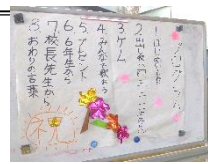 プログラム
1. はじめの言葉
3. ゲーム
4. みんなで歌おう
5. プレゼント
6. 6年生から
7. 校長先生から
8. おわりの言葉